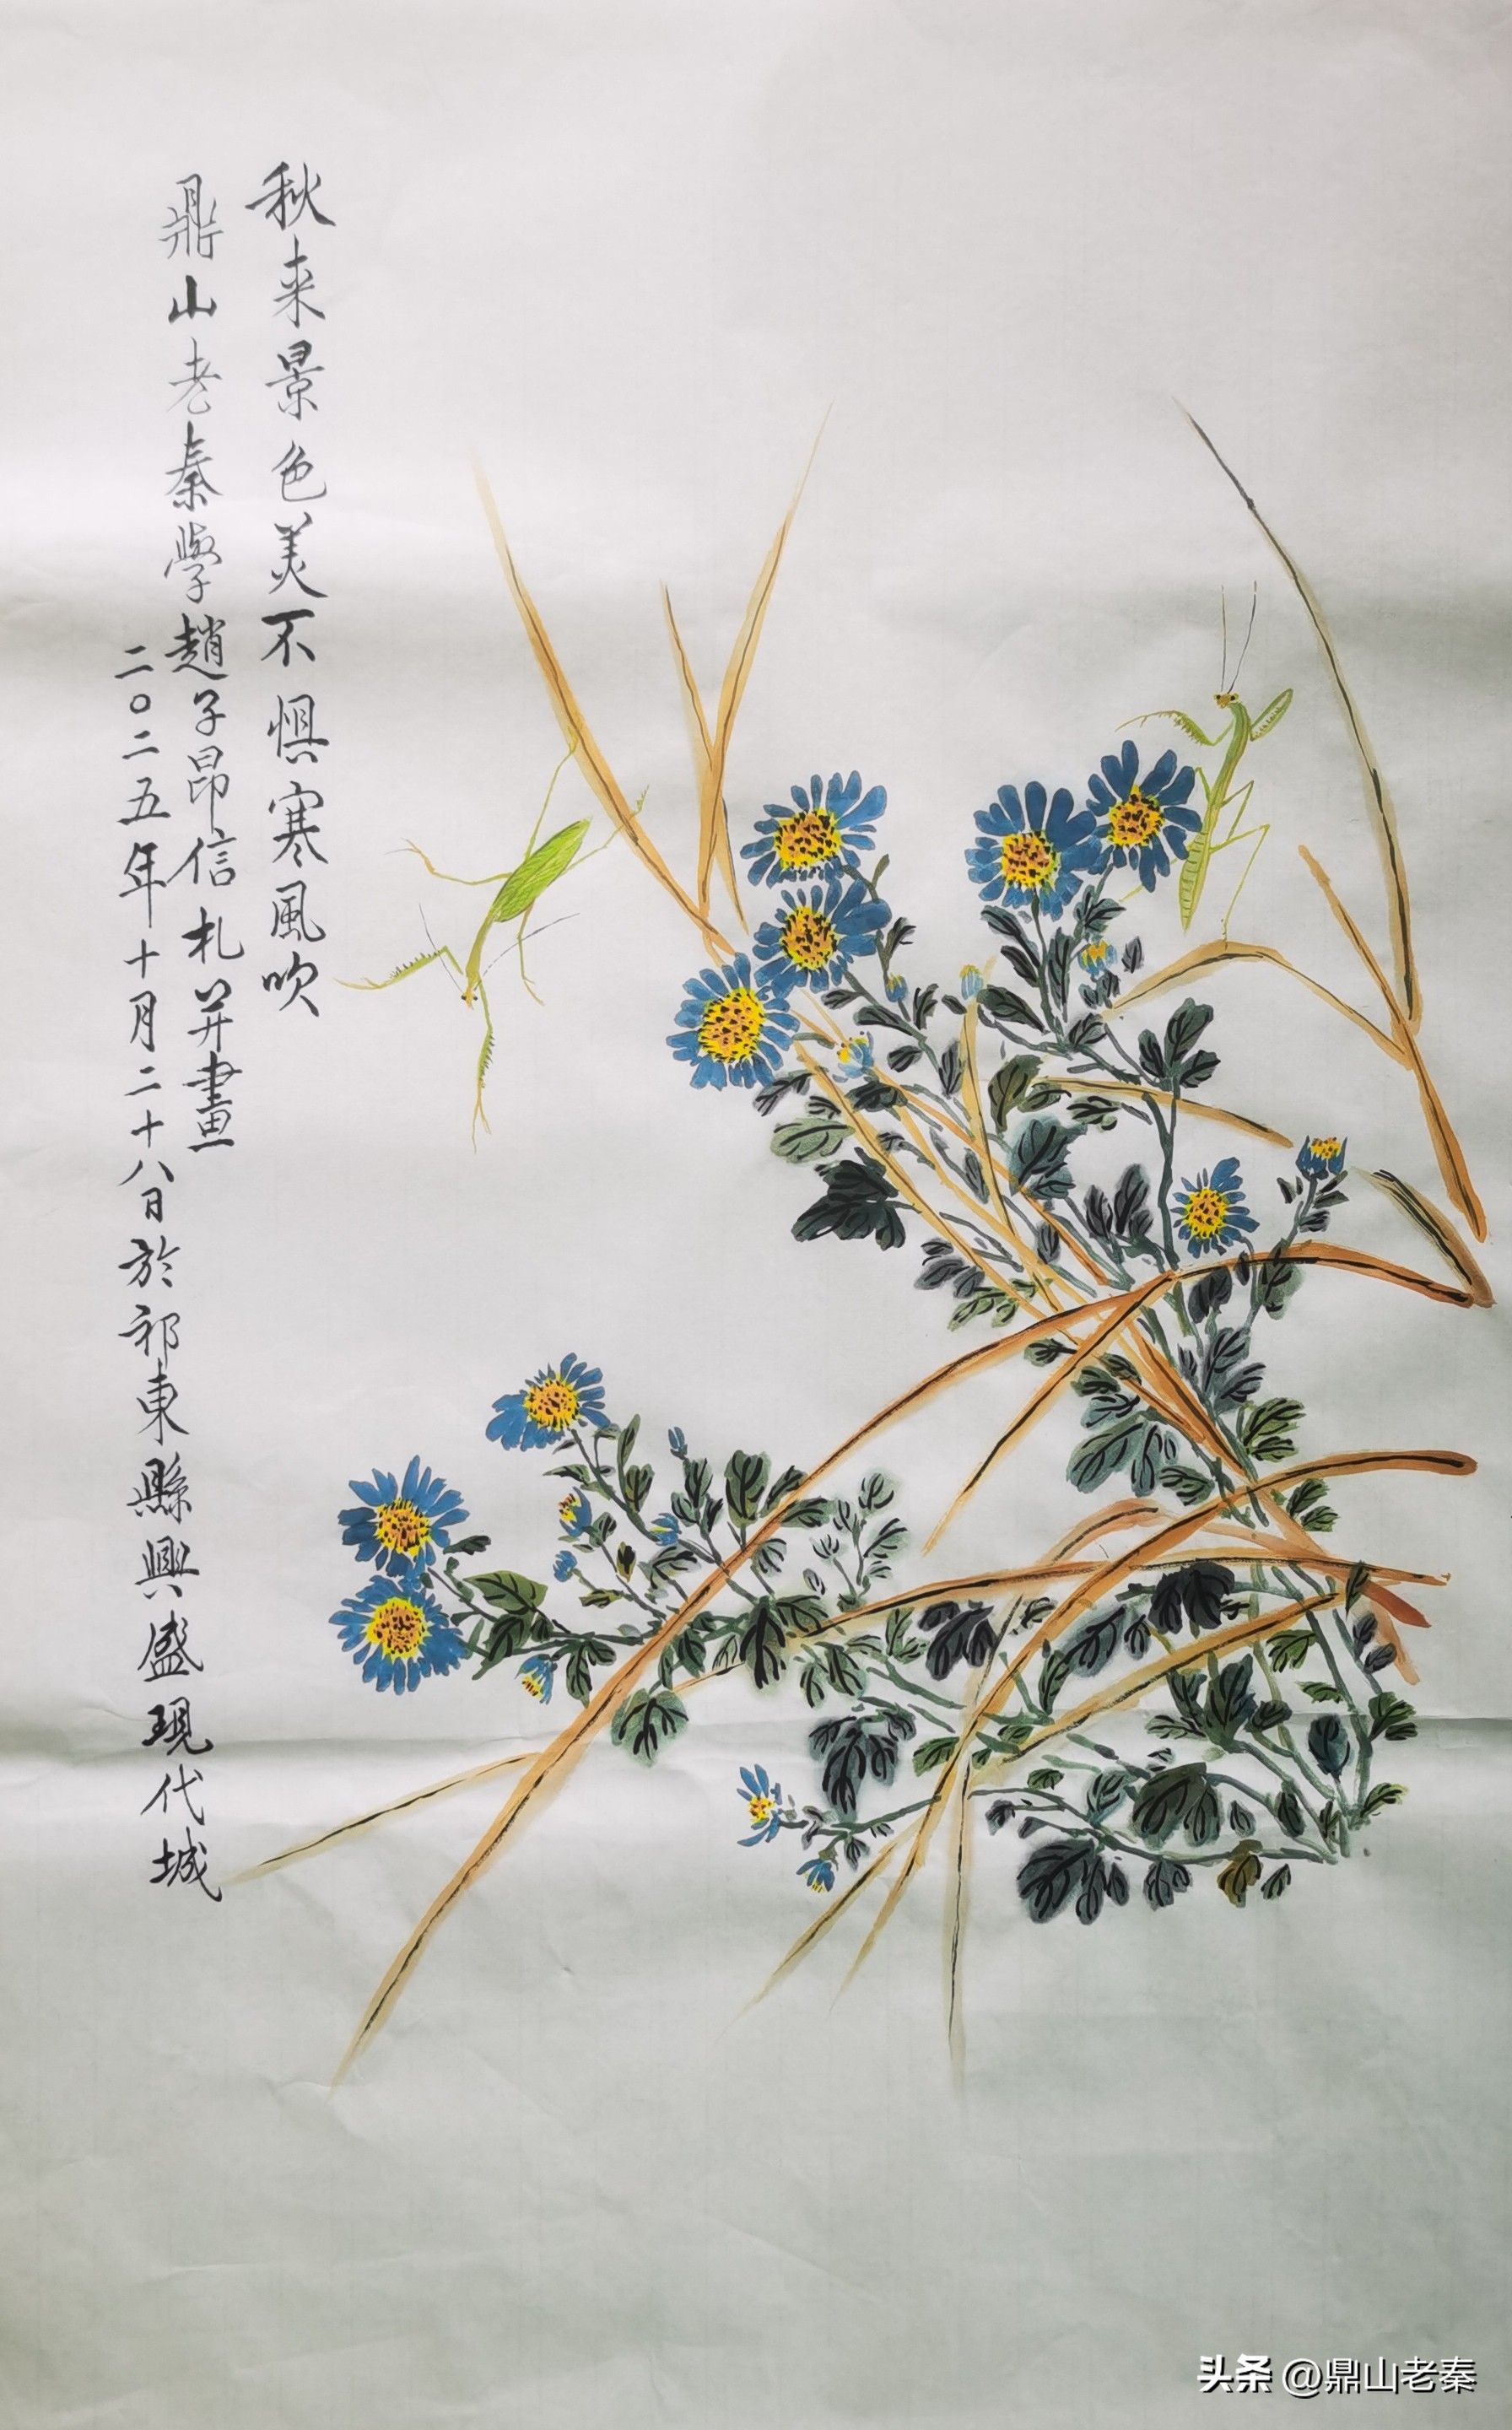 秋来景色美不惧寒風吹
鼎山老秦學趙子昂信札并畫
二〇二五年十月二十八日於祁東縣興盛現代城
头条 @鼎山老秦